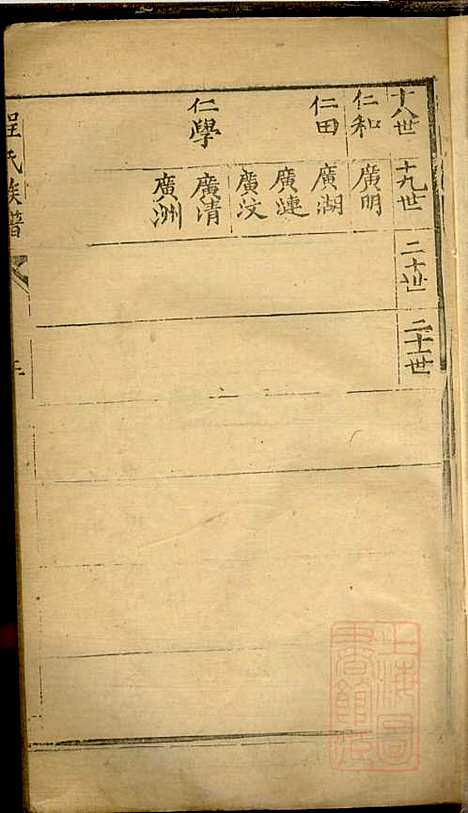 十八世
十九世
二十世
二十一世
仁和
廣明
仁田
廣湖
廣漣
廣汶
仁學
廣清
廣洲
程氏族譜
上海圖書館藏